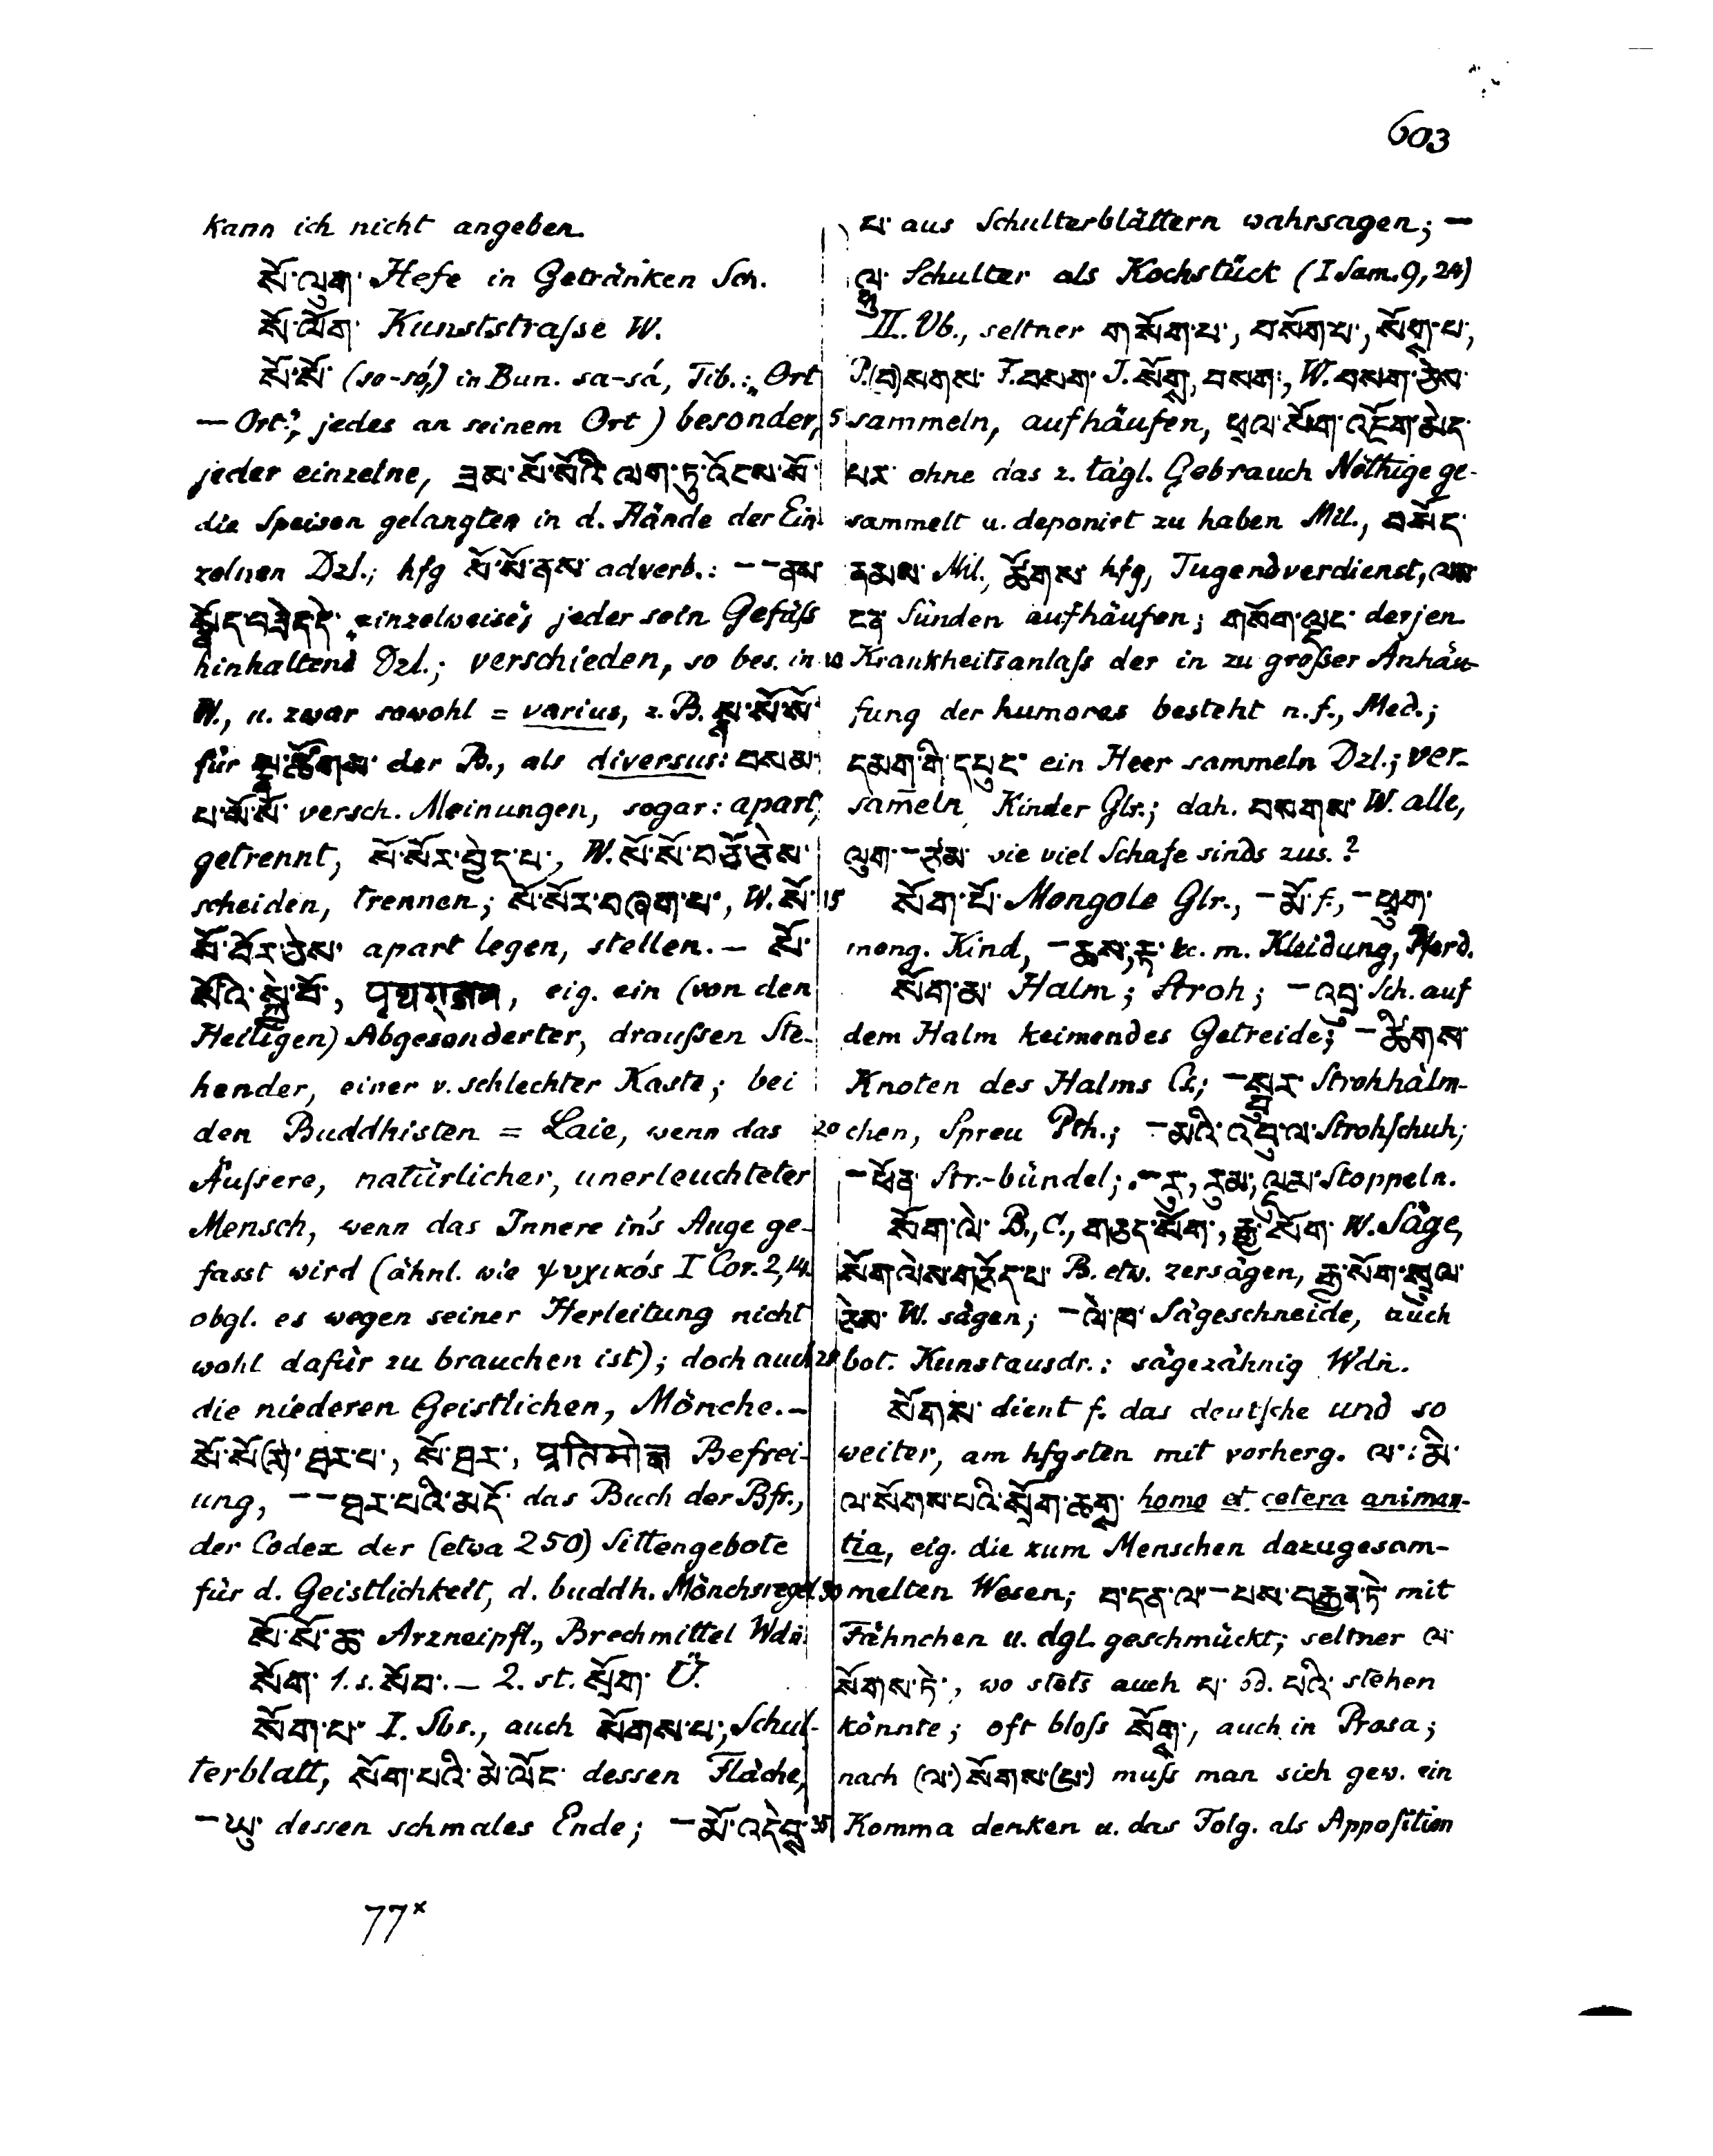 603
kann ich nicht angeben.
སོ་ལུག་ Hefe in Getränken Sch.
སོ་ལོག་ Kunststraſse W.
སོ་སོ་ (so-só,) in Bun. sa-sá, Tib.: „Ort
— Ort“, jedes an seinem Ort) besonder,
jeder einzelne, ཟས་སོ་སོའི་ལག་ཏུ་འོངས་སོ་
die Speisen gelangten in d. Hände der Ein-
zelnen Dzl.; hfg སོ་སོ་ནས་ adverb.: – – ནས་
སྣོད་བཟེད་དེ་ einzelweise, jeder sein Gefäſs
hinhaltend Dzl.; verschieden, so bes. in
W., u. zwar sowohl = varius, z. B. སྣ་སོ་སོ་
für སྣ་ཚོགས་ der B., als diversus: བསམ་
པ་སོ་སོ་ versch. Meinungen, sogar: apart,
getrennt, སོ་སོར་བྱེད་པ་, W. སོ་སོ་བཅོ་ཅེས་
scheiden, trennen; སོ་སོར་བཞག་པ་, W. སོ་
སོ་བོར་ཅེས་ apart legen, stellen. – སོ་
སོའི་སྐྱེ་བོ་, पृथग्जन, eig. ein (von den
Heiligen) Abgesonderter, drauſsen Ste-
hender, einer v. schlechter Kaste; bei
den Buddhisten = Laie, wenn das
Äuſsere, natürlicher, unerleuchteter
Mensch, wenn das Innere in's Auge ge-
fasst wird (ähnl. wie ψυχικός I Cor. 2,14.
obgl. es wegen seiner Herleitung nicht
wohl dafür zu brauchen ist); doch auch
die niederen Geistlichen, Mönche. –
སོ་སོ་(ར་)ཐར་པ་, སོ་ཐར་, प्रतिमोक्ष Befrei-
ung, – – ཐར་པའི་མདོ་ das Buch der Bfr.,
der Codex der (etwa 250) Sittengebote
für d. Geistlichkeit, d. buddh. Mönchsregel.
སོ་སོ་ཆ་ Arzneipfl., Brechmittel Wdṅ.
སོག་ 1. s. སོབ་. – 2. st. སྲོག་ Ü.
སོག་པ་ I. Sbs., auch སོགས་པ་, Schul-
terblatt, སོག་པའི་མེ་ལོང་ dessen Fläche,
– ཡུ་ dessen schmales Ende; – མོ་འདེབས་
པ་ aus Schulterblättern wahrsagen; –
ལྷུ་ Schulter als Kochstück (I Sam. 9, 24)
II. Vb., seltner གསོག་པ་, བསོག་པ་, སོགས་པ་,
P. (བ)སགས་ F. བསག་ J. སོགས་, བསག་, W. བསག་ཅེས་
5 sammeln, aufhäufen, ཕྱལ་སོག་འཇོག་མེད་
པར་ ohne das z. tägl. Gebrauch Nöthige ge-
sammelt u. deponirt zu haben Mil., བསོད་
ནམས་ Mil., ཚོགས་ hfg, Tugendverdienst, ལས་
ངན་ Sünden aufhäufen; གསོག་ལྡང་ derjen.
10 Krankheitsanlaſs der in zu großer Anhäu-
fung der humores besteht n. f., Med.;
དམག་གི་དཔུང་ ein Heer sammeln Dzl.; ver-
sam̄eln, Kinder Glr.; dah. བསགས་ W. alle,
ལུག་ – ཙམ་ wie viel Schafe sinds zus.?
15 སོག་པོ་ Mongole Glr., – མོ་ f., – ཕྲུག་
mong. Kind, – ཆས་, རྟ་ &c. m. Kleidung, Pferd.
སོག་མ་ Halm; Stroh; – འབྲུ་ Sch. auf
dem Halm keimendes Getreide; – ཚིགས་
Knoten des Halms Cs.; – སྦུར་ Strohhälm-
20 chen, Spreu Pth.; – མའི་འབུལ་ Strohſchuh;
– ཕོན་ Str.-bündel; – རུ, རུམ་, ལུམ་ Stoppeln.
སོག་ལེ་ B., C., གཅད་སོག་, རྒྱ་སོག་ W. Säge,
སོག་ལེས་གཅོད་པ་ B. etw. zersägen, རྒྱ་སོག་སྲུལ་
ཅེས་ W. sägen; – ལེ་ཁ་ Sägeschneide, auch
25 bot. Kunstausdr.: sägezähnig Wdṅ.
སོགས་ dient f. das deutſche und so
weiter, am hfgsten mit vorherg. ལ་: མི་
ལ་སོགས་པའི་སྲོག་ཆགས་ homo et cetera animan-
tia, eig. die zum Menschen dazugesam-
30 melten Wesen; བ་དན་ལ་ – པས་བརྒྱན་ཏེ་ mit
Fähnchen u. dgl. geschmückt; seltner ལ་
སོགས་ཏེ་, wo stets auch པ་ od. པའི་ stehen
könnte; oft bloſs སོགས་, auch in Prosa;
nach (ལ་) སོགས་ (པ་) muſs man sich gew. ein
35 Komma denken u. das Folg. als Appoſition
77ˣ